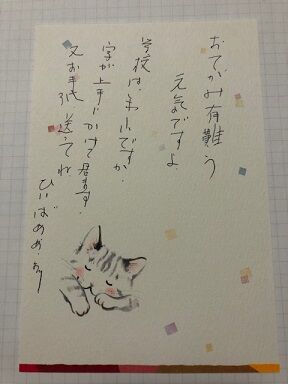 おてがみ有難う
元気ですよ
学校は、お休ですか、
字が上手にかけて居ます、
又お手紙送ってね
ひいばあば、より